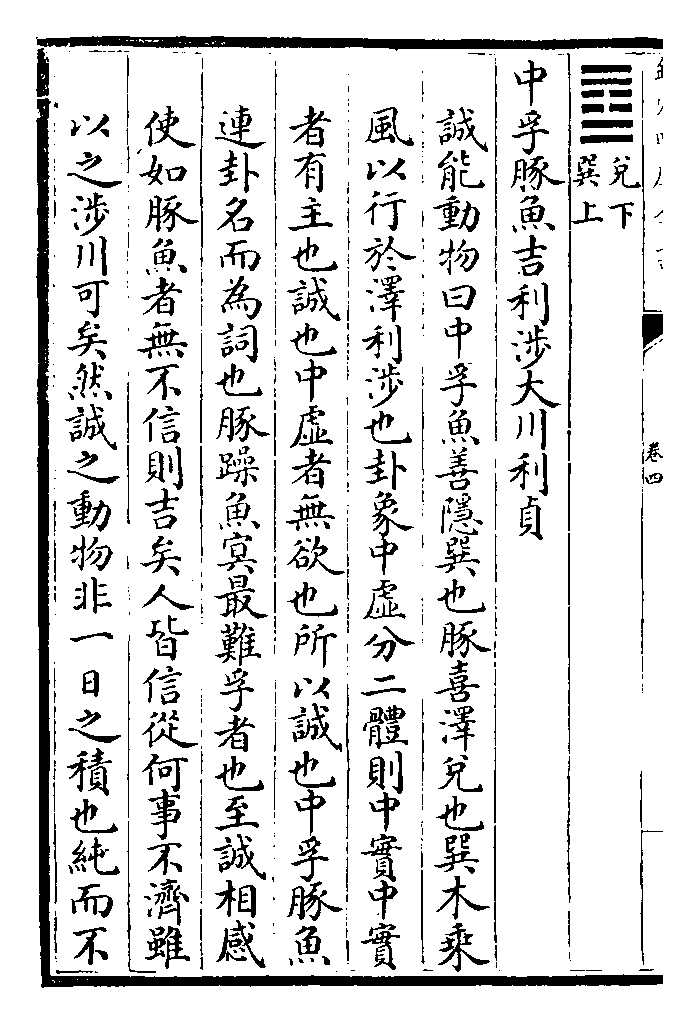 兌下
巽上
中孚豚魚吉利涉大川利貞
誠能動物曰中孚魚善隱巽也豚喜澤兌也巽木乘
風以行於澤利涉也卦象中虛分二體則中實中實
者有主也誠也中虛者無欲也所以誠也中孚豚魚
連卦名而為詞也豚躁魚冥最難孚者也至誠相感
使如豚魚者無不信則吉矣人皆信從何事不濟雖
以之涉川可矣然誠之動物非一日之積也純而不
卷四